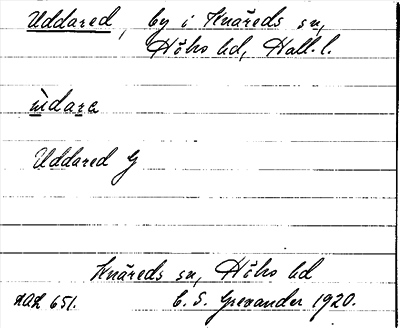 Uddared, by i Knäreds sn,
Höks hd, Hall. l.
ùdara
Uddared G
Knäreds sn, Höks hd
AOH 651. C. S. Grevander 1920.